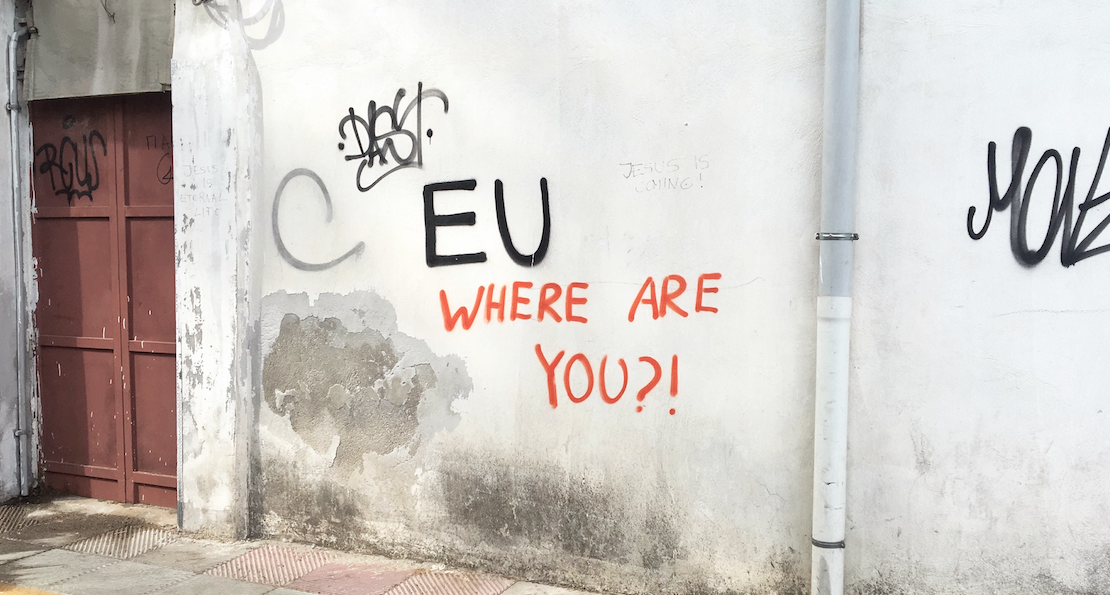 EU
WHERE ARE
YOU?!
JESUS IS
COMING!
JESUS
IS
ETERNAL
LIFE